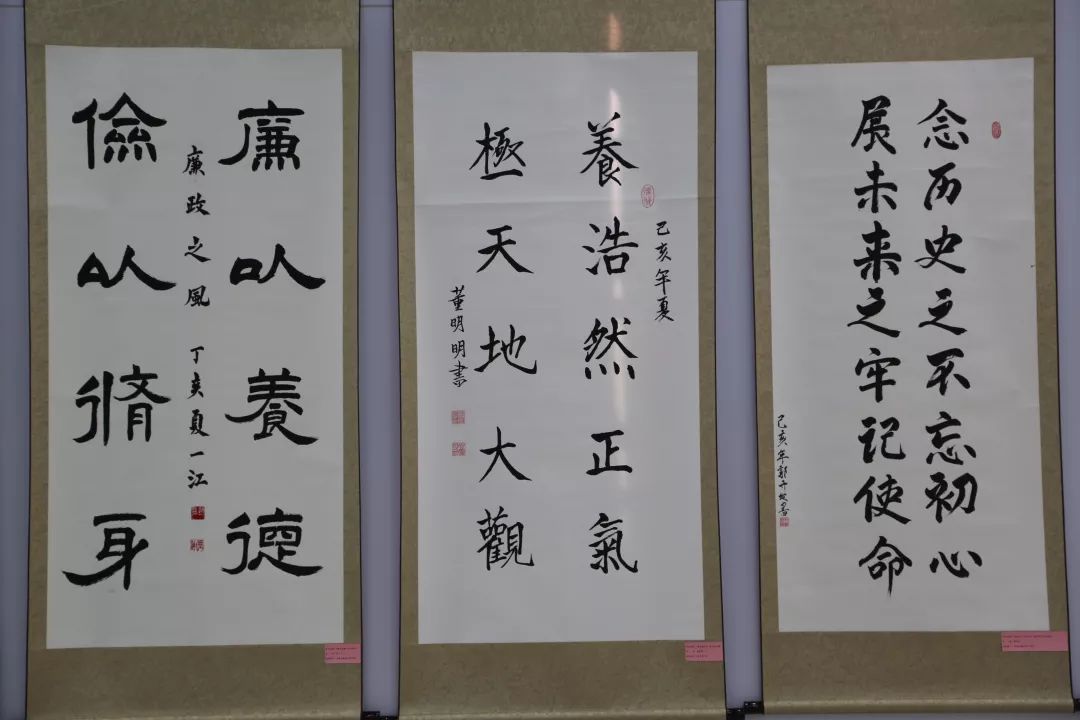 廉以養德
廉政之風 丁亥夏一江
儉以脩身
養浩然正氣
己亥年夏
極天地大觀
董明明書
念历史之不忘初心
展未来之牢记使命
己亥年郭